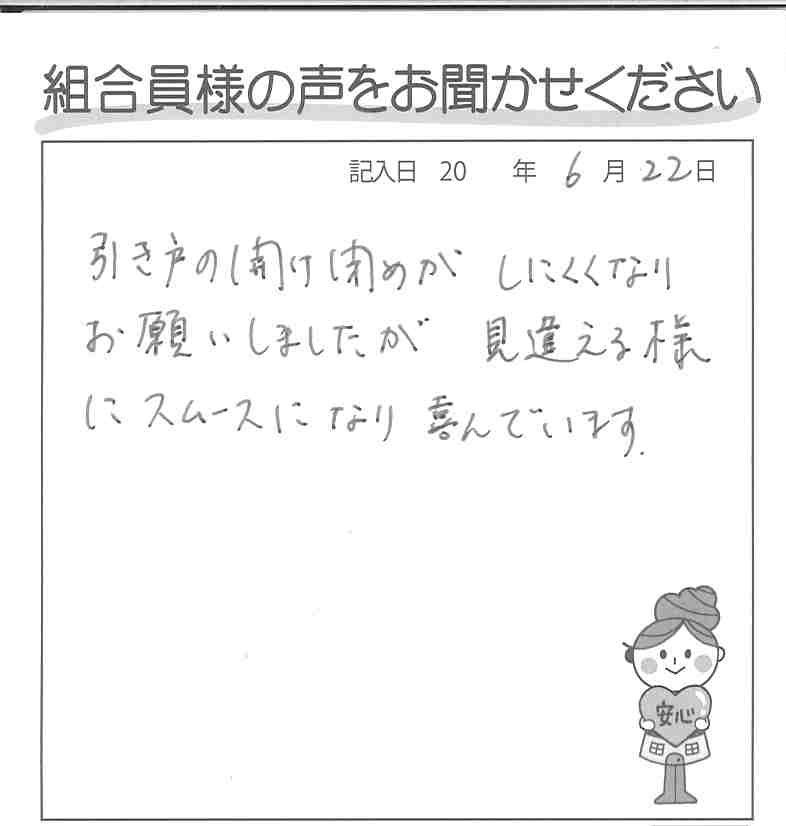 組合員様の声をお聞かせください
記入日 20 年 6月22日
引き戸の開け閉めが しにくくなり
お願いしましたが 見違える様
にスムースになり 喜んでいます.
安心